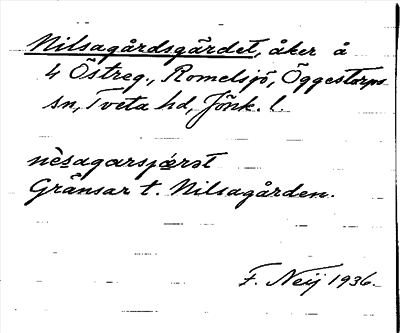 Nilsagårdsgärdet, åker å
4 Östreg., Romelsjö, Öggestorps
sn, Tveta hd, Jönk. l.
Gränsar t. Nilsagården.
F. Neij 1936.